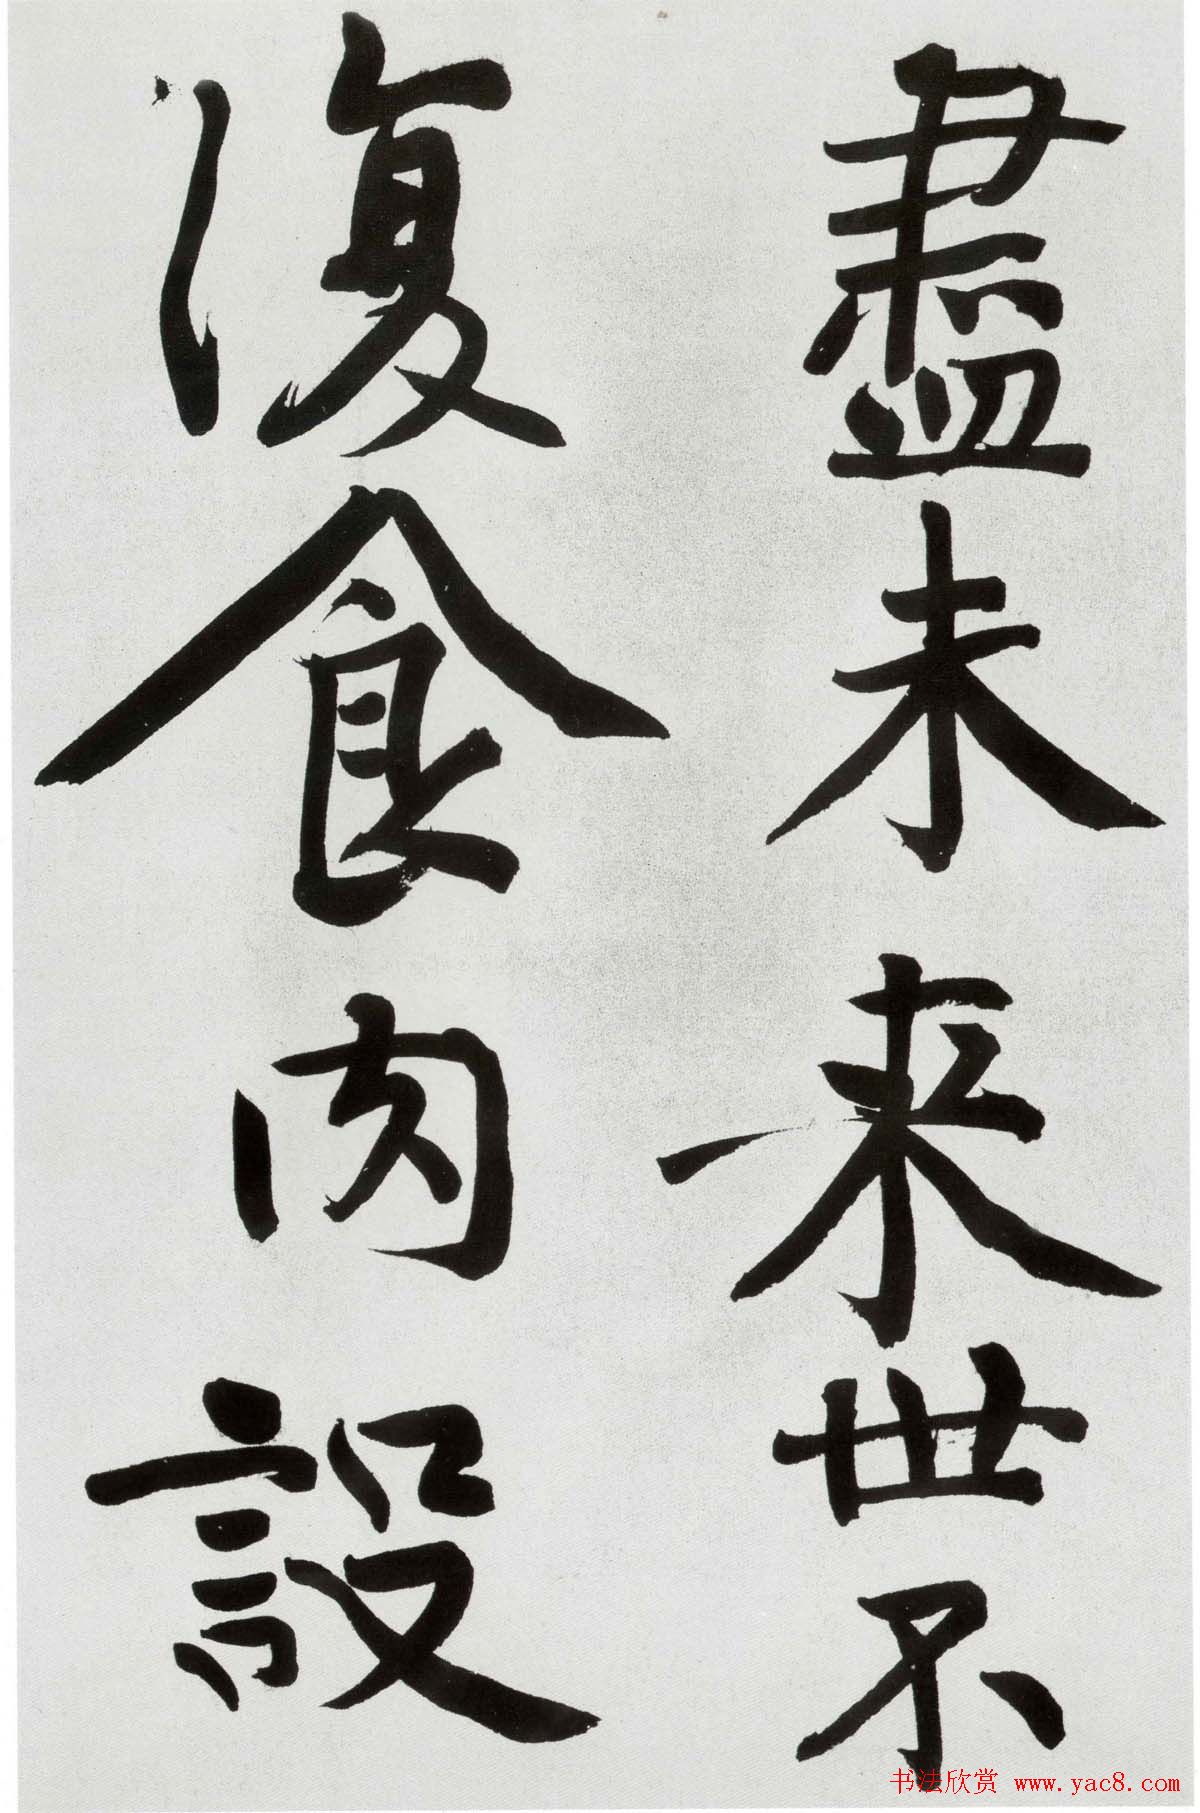 盡未来世不
復食肉設
书法欣赏 www.yac8.com